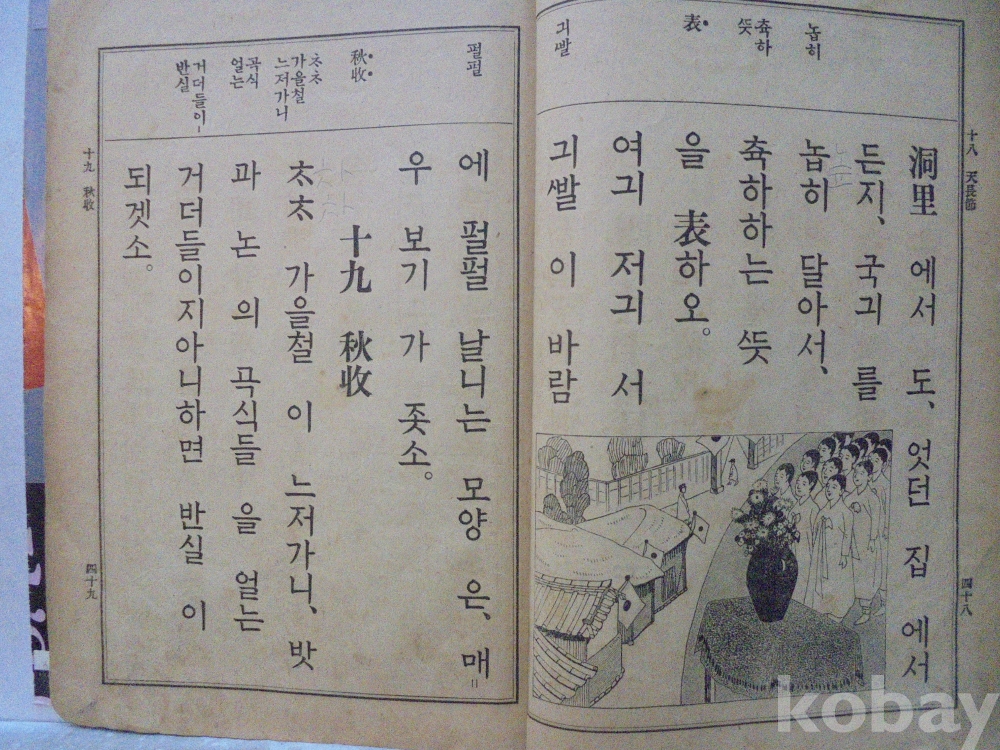 十八 天長節
놉히
츅하
ᄯᅳᆺ
表
긔ᄲᅡᆯ
洞里 에서 도、 엇던 집 에서
든지、 국긔 를
놉히 달아서、
츅하하는 ᄯᅳᆺ
을 表하오。
여긔 저긔 서
긔ᄲᅡᆯ 이 바람
四十八
펄펄
秋收
ᄎᆞᄎᆞ
가을철
느저가니
곡식
얼는
거더들이-
반실
에 펄펄 날니는 모양 은、 매=
우 보기 가 죳소。
十九 秋收
ᄎᆞᄎᆞ 가을철 이 느저가니、 밧
과 논 의 곡식들 을 얼는
거더들이지아니하면 반실 이
되겟소。
차
차
十九 秋收
四十九
kobay